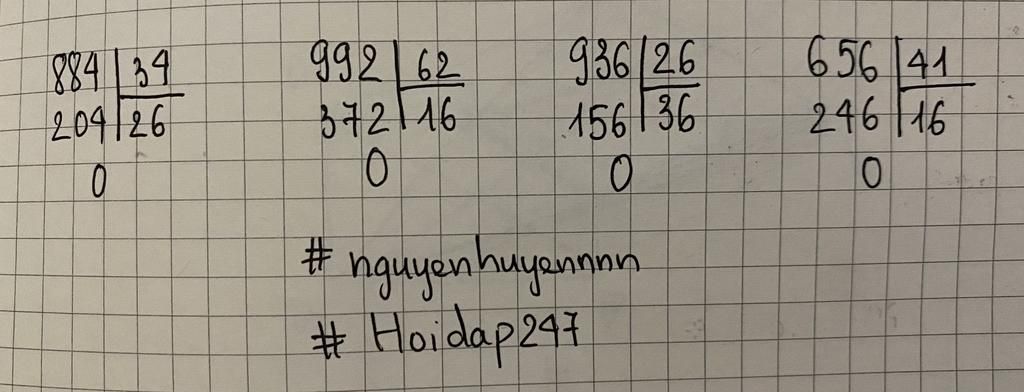 884 34
204 26
0
992 62
372 16
0
936 26
156 36
0
656 41
246 16
0
# nguyenhuyennnn
# Hoidap247